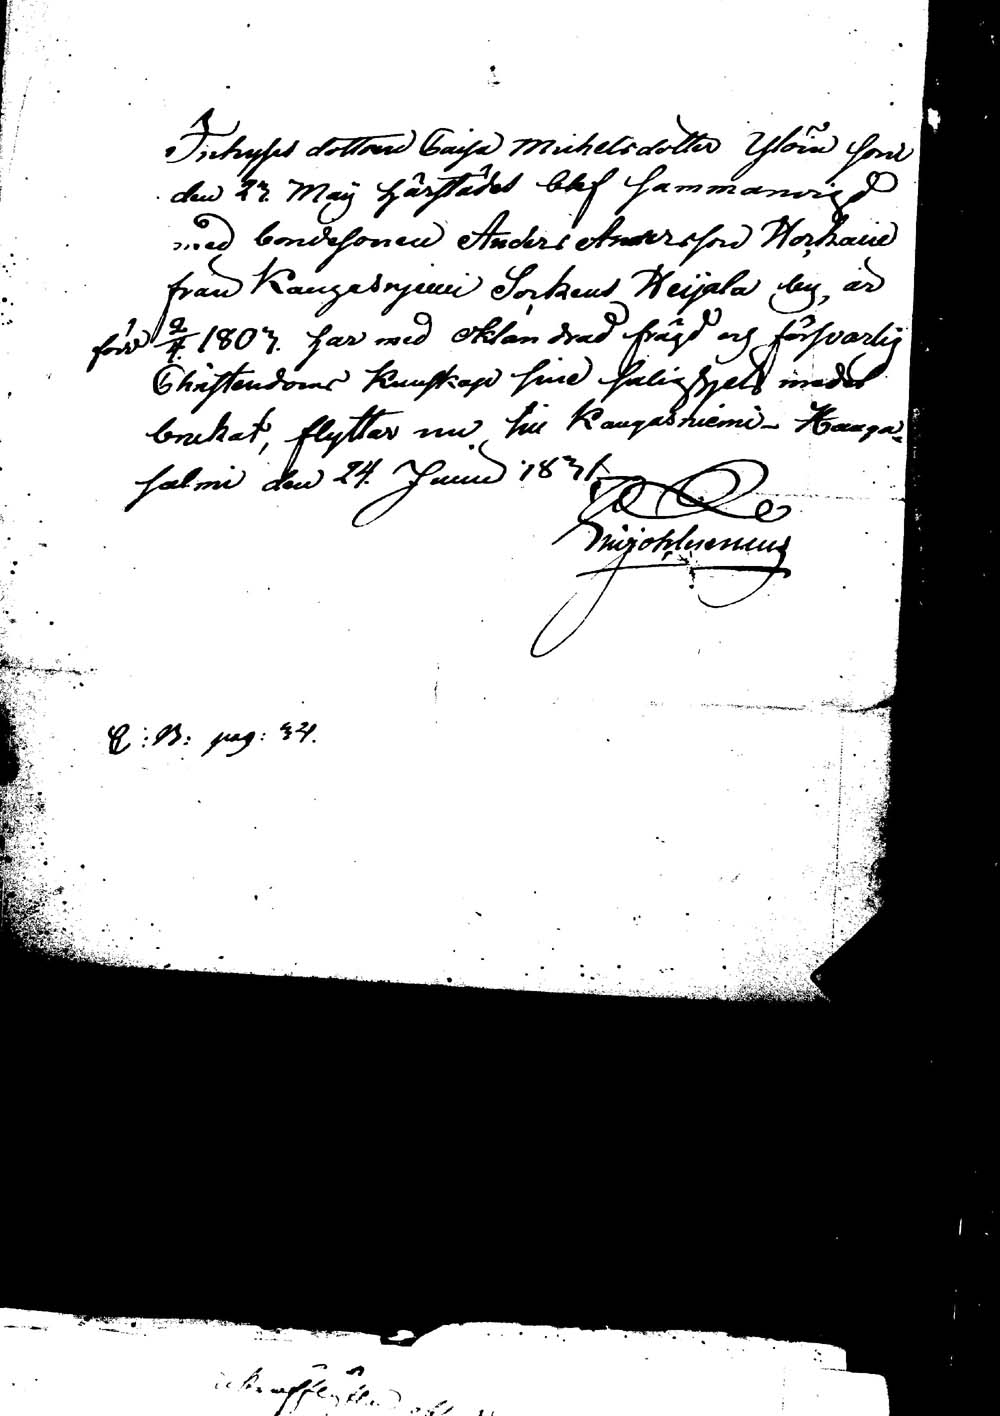 Inhyses dottren Caisa Michelsdotter Ylöin som
den 27. Maij härstädes blef sammanvigd
med bondesonen Anders Andersson Horkain
från Kangasniemi Sockens Heijala by, är
född 2/4 1807. har med oklandrad frägd och försvarlig
Christendoms kunskap sine salig medel
brukat, flyttar nu till Kangasniemi – Hauga-
salmi den 24. Junii 1831.
C: B: pag: 34.